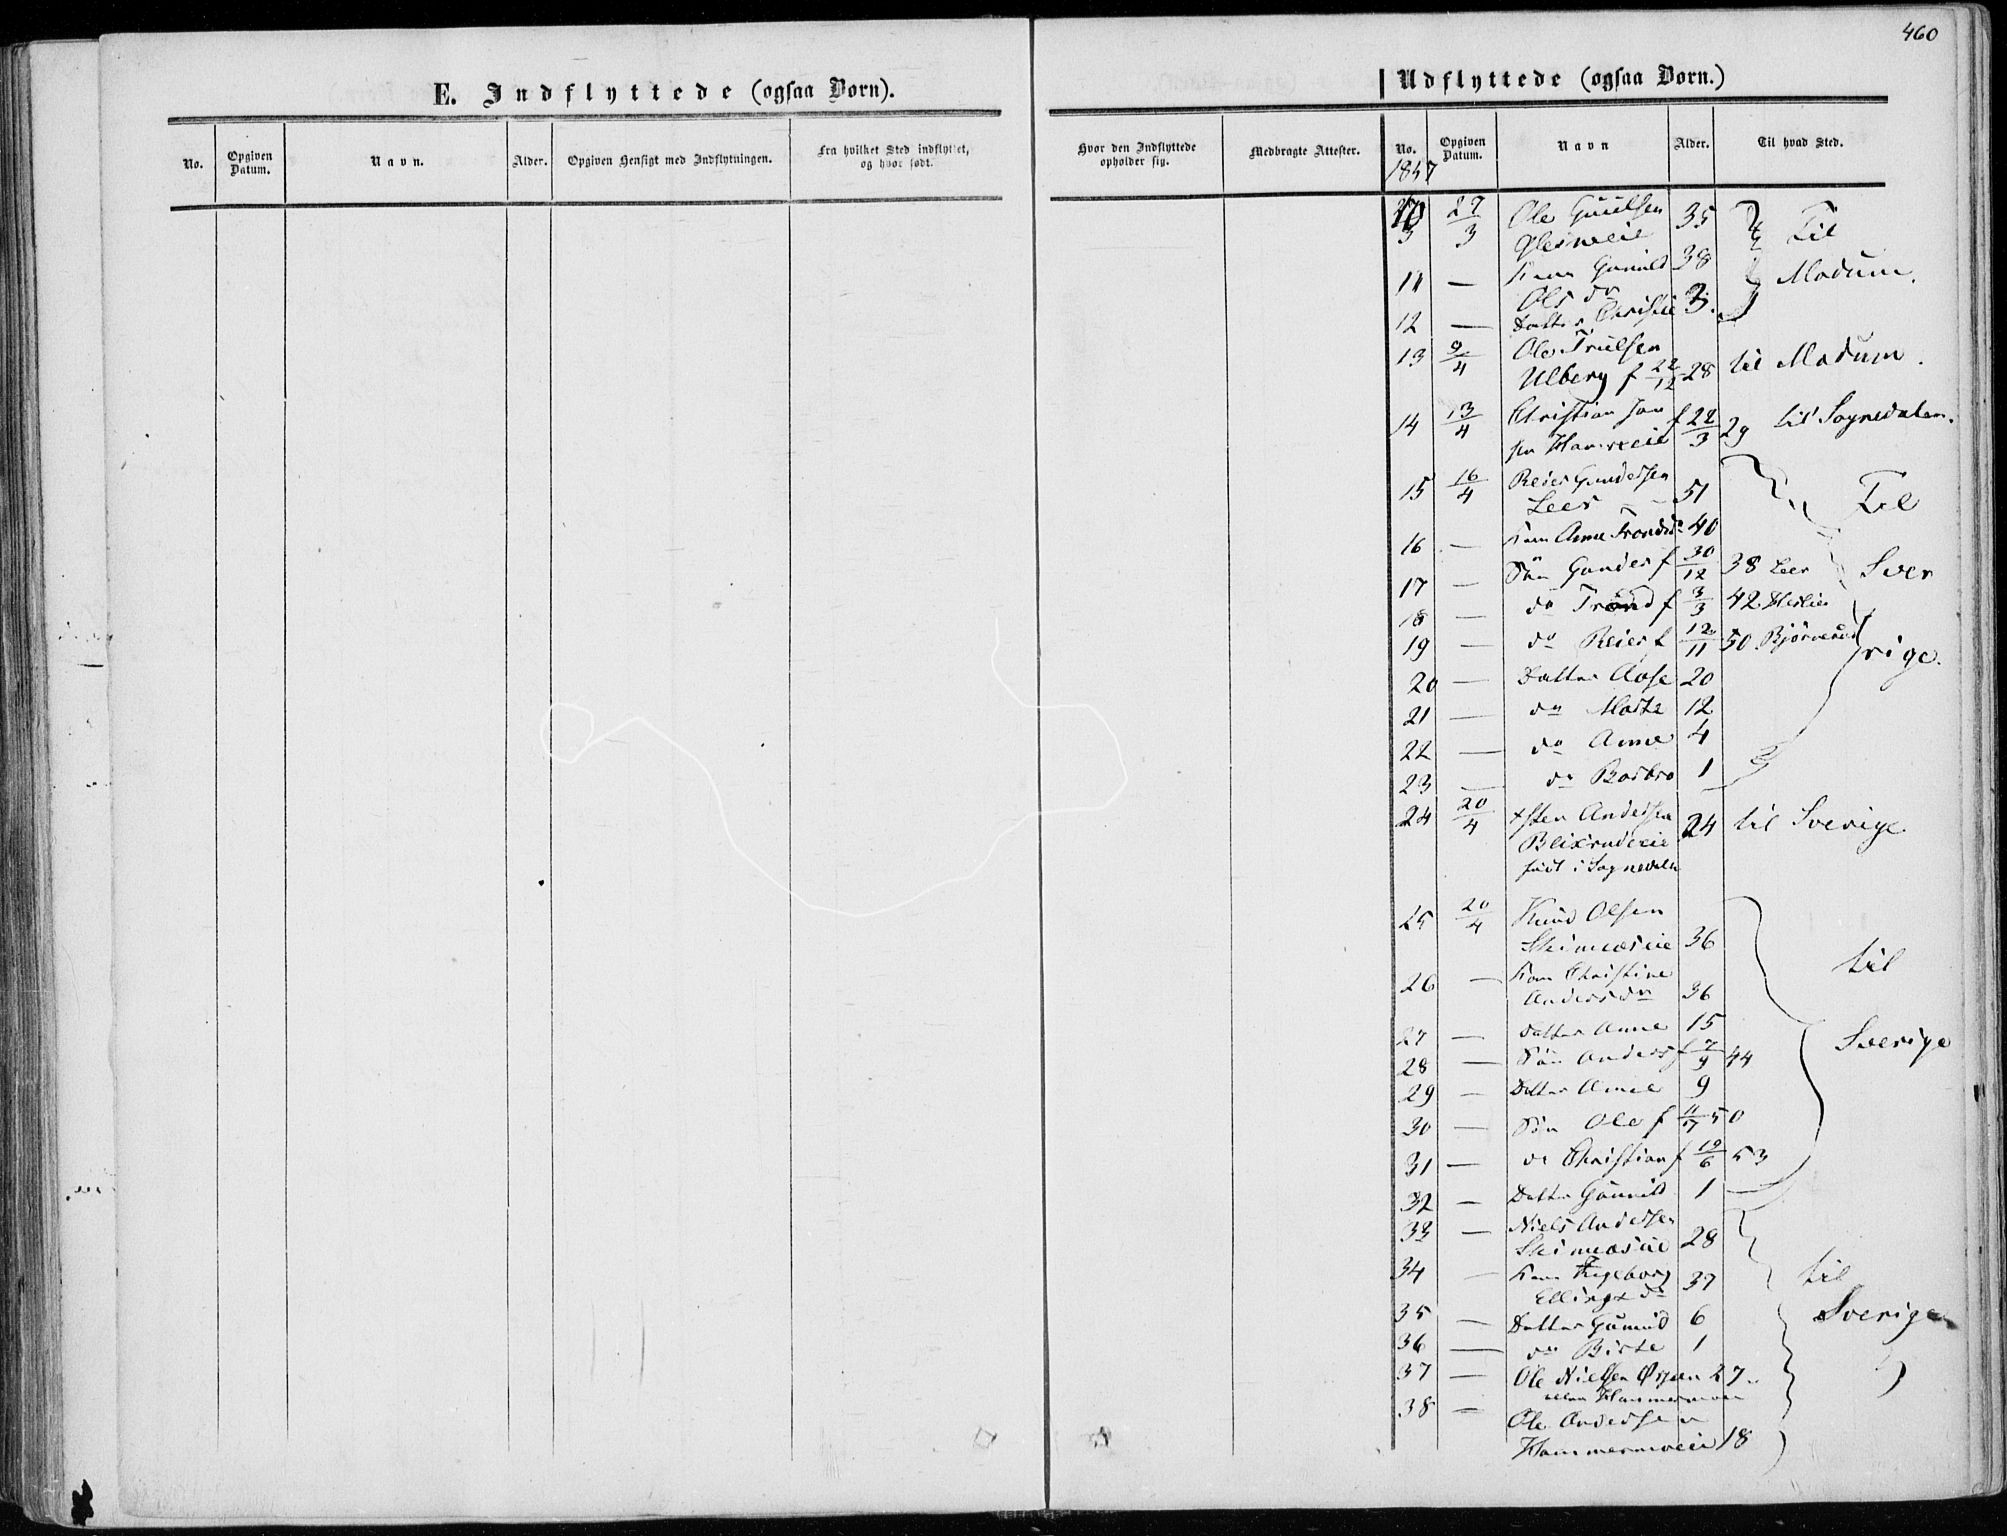 460
E. Indflyttede (ogsaa Born).
Udflyttede (ogsaa Born.)
No. Opgiven Datum. Navn. Alder. Opgiven Hensigt med Indflytningen. Fra hvilket Sted indflyttet, og hvor født.
Hvor den Indflyttede opholder sig. Medbragte Attester. No. Opgiven Datum. Navn Alder. Til hvad Sted.
1857
10 27/3 Ole 35 Til
11 — Kone Gunild 38 Modum.
Ols dr
12 — Datter Christie 3.
13 9/4 Ole Trulsen
Ulberg f 22/12 28 til Modum.
14 13/4 Christian Jan
sen f 22/3 29 til Sognedalen.
15 16/4 Reier Gundersen
Leer 51 Til
16 — Kone Anne Tronds 40
17 — Søn Gunder f 30/12 38 Leer Sver
18 — do Trond f 3/3 42
19 — do Reier f 12/11 50 rige.
20 — Datter Aase 20
21 — do Marte 12
22 — do Anne 4
23 — do Barbro 1
24 20/4 Andersen 24 til Sverige
Blixrudeie
født i Sognedalen
25 20/4 Knud Olsen
36 til
26 — Kone Christine
Anders dr 36
27 — Datter Anne 15 Sverige
28 — Søn Anders f 7/9 44
29 — Datter 9
30 — Søn Ole f 50
31 — do Christian f 19/6 53
32 — Datter Gunnild 1
33 — Niels Andersen
28
34 — Kone Ingeborg 37 til
Ellings dr
35 — Datter Gunild 6 Sverige
36 — do Birte 1
37 — Ole Nielsen 27
38 — Ole Andersen
Hammermoeie 18